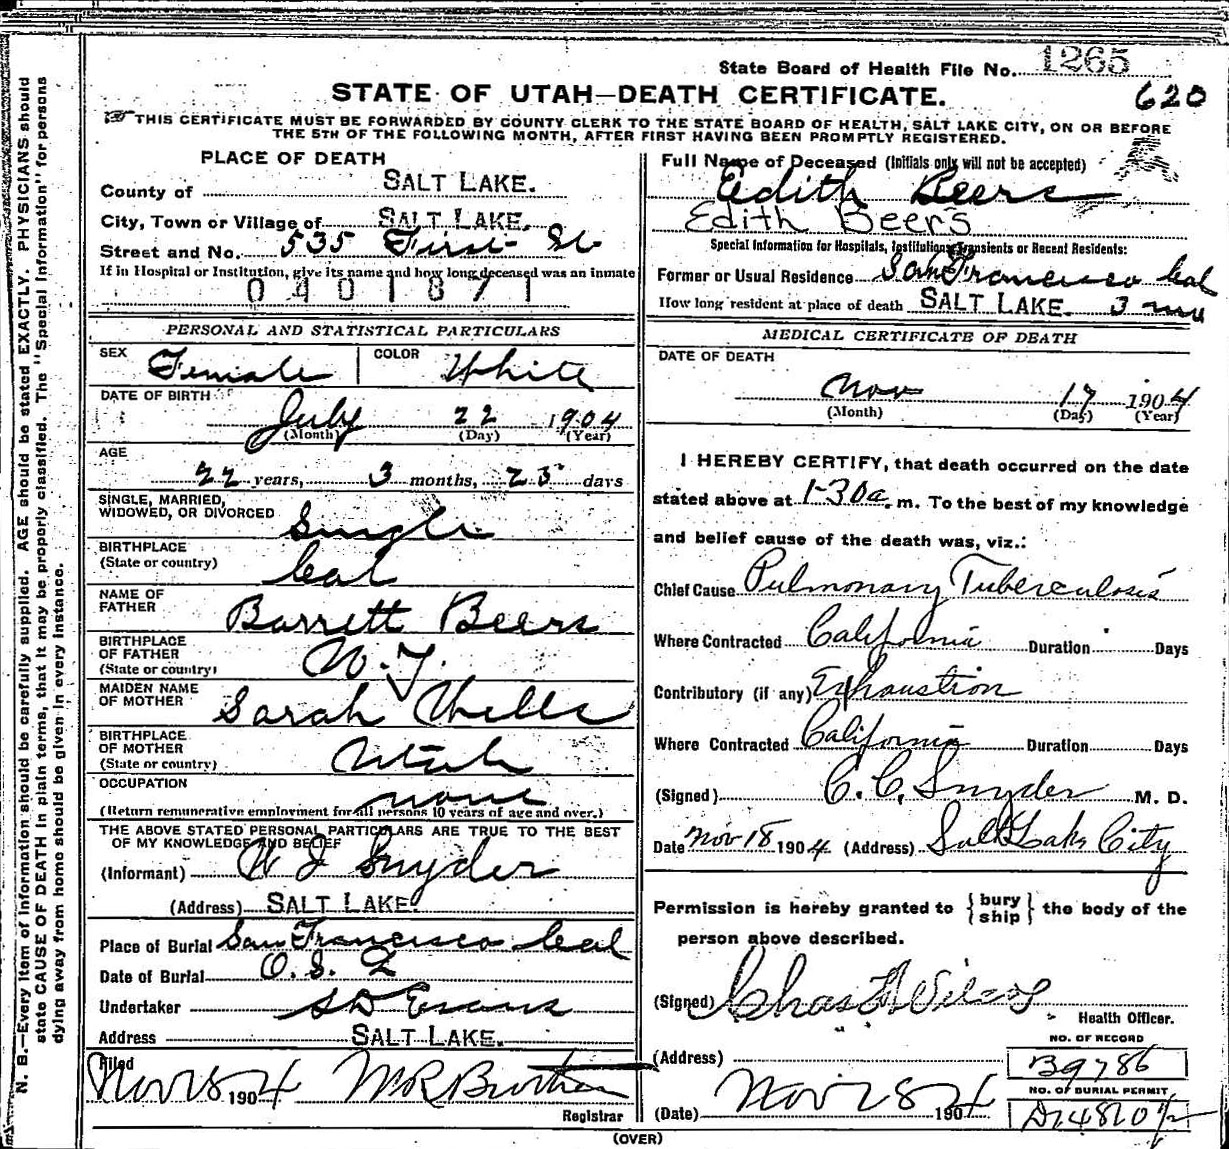 State Board of Health File No. 1265
STATE OF UTAH—DEATH CERTIFICATE.
620
THIS CERTIFICATE MUST BE FORWARDED BY COUNTY CLERK TO THE STATE BOARD OF HEALTH, SALT LAKE CITY, ON OR BEFORE
THE 5TH OF THE FOLLOWING MONTH, AFTER FIRST HAVING BEEN PROMPTLY REGISTERED.
N. B.—Every item of information should be carefully supplied. AGE should be stated EXACTLY. PHYSICIANS should
state CAUSE OF DEATH in plain terms, that it may be properly classified. The "Special Information" for persons
dying away from home should be given in every instance.
PLACE OF DEATH
County of SALT LAKE.
City, Town or Village of SALT LAKE.
Street and No. 535 First St
If in Hospital or Institution, give its name and how long deceased was an inmate
0401871
PERSONAL AND STATISTICAL PARTICULARS
SEX Female COLOR White
DATE OF BIRTH
July 22 1904
(Month) (Day) (Year)
AGE
22 years, 3 months, 25 days
SINGLE, MARRIED,
WIDOWED, OR DIVORCED Single
BIRTHPLACE
(State or country) Cal
NAME OF
FATHER Barrett Beers
BIRTHPLACE
OF FATHER
(State or country) N.J.
MAIDEN NAME
OF MOTHER Sarah
BIRTHPLACE
OF MOTHER
(State or country) Utah
OCCUPATION
none
(Return remunerative employment for all persons 10 years of age and over.)
THE ABOVE STATED PERSONAL PARTICULARS ARE TRUE TO THE BEST
OF MY KNOWLEDGE AND BELIEF
(Informant) W J Snyder
(Address) SALT LAKE.
Place of Burial San Francisco Cal
Date of Burial O. S. L
Undertaker S D Evans
Address SALT LAKE.
Filed
Nov 18 1904
Registrar
Full Name of Deceased (Initials only will not be accepted)
Edith Beers
Edith Beers
Special Information for Hospitals, Institutions, Transients or Recent Residents:
Former or Usual Residence San Francisco Cal
How long resident at place of death SALT LAKE. 3
MEDICAL CERTIFICATE OF DEATH
DATE OF DEATH
Nov 17 1904
(Month) (Day) (Year)
I HEREBY CERTIFY, that death occurred on the date
stated above at 1-30 a. m. To the best of my knowledge
and belief cause of the death was, viz.:
Chief Cause Pulmonary Tuberculosis
Where Contracted California Duration Days
Contributory (if any) Exhaustion
Where Contracted California Duration Days
(Signed) C. C. Snyder M. D.
Date Nov 18 1904 (Address) Salt Lake City
Permission is hereby granted to { bury
ship } the body of the
person above described.
(Signed) Chas F Wilcox
Health Officer.
(Address)
(Date) Nov 18 1904
NO. OF RECORD
B9786
NO. OF BURIAL PERMIT
(OVER)